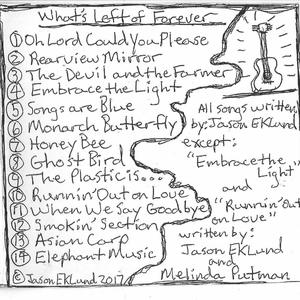 What's Left of Forever
① Oh Lord Could You Please
② Rearview Mirror
③ The Devil and the Farmer
④ Embrace the Light
⑤ Songs are Blue
⑥ Monarch Butterfly
⑦ Honey Bee
⑧ Ghost Bird
⑨ The Plastic is...
⑩ Runnin' Out on Love
⑪ When We Say Goodbye
⑫ Smokin' Section
⑬ Asian Carp
⑭ Elephant Music
© Jason EKLund 2017
All songs written
by: Jason EKLund
except:
"Embrace the
Light"
and
"Runnin' Out
on Love"
written by:
Jason EKLund
and
Melinda Putman